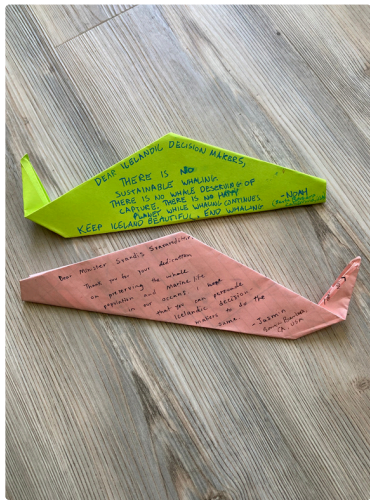 DEAR ICELANDIC DECISION MAKERS,
THERE IS NO
SUSTAINABLE WHALING.
THERE IS NO WHALE DESERVING OF
CAPTURE. THERE IS NO HAPPY
PLANET WHILE WHALING CONTINUES.
KEEP ICELAND BEAUTIFUL, END WHALING
-NOAH
Dear Minister Svandís
Thank you for your dedication
on preserving the whale
population and Marine life
in our oceans. I hope
that you can persuade
Icelandic decision
makers to do the
same.
- Jasmin
CA, USA